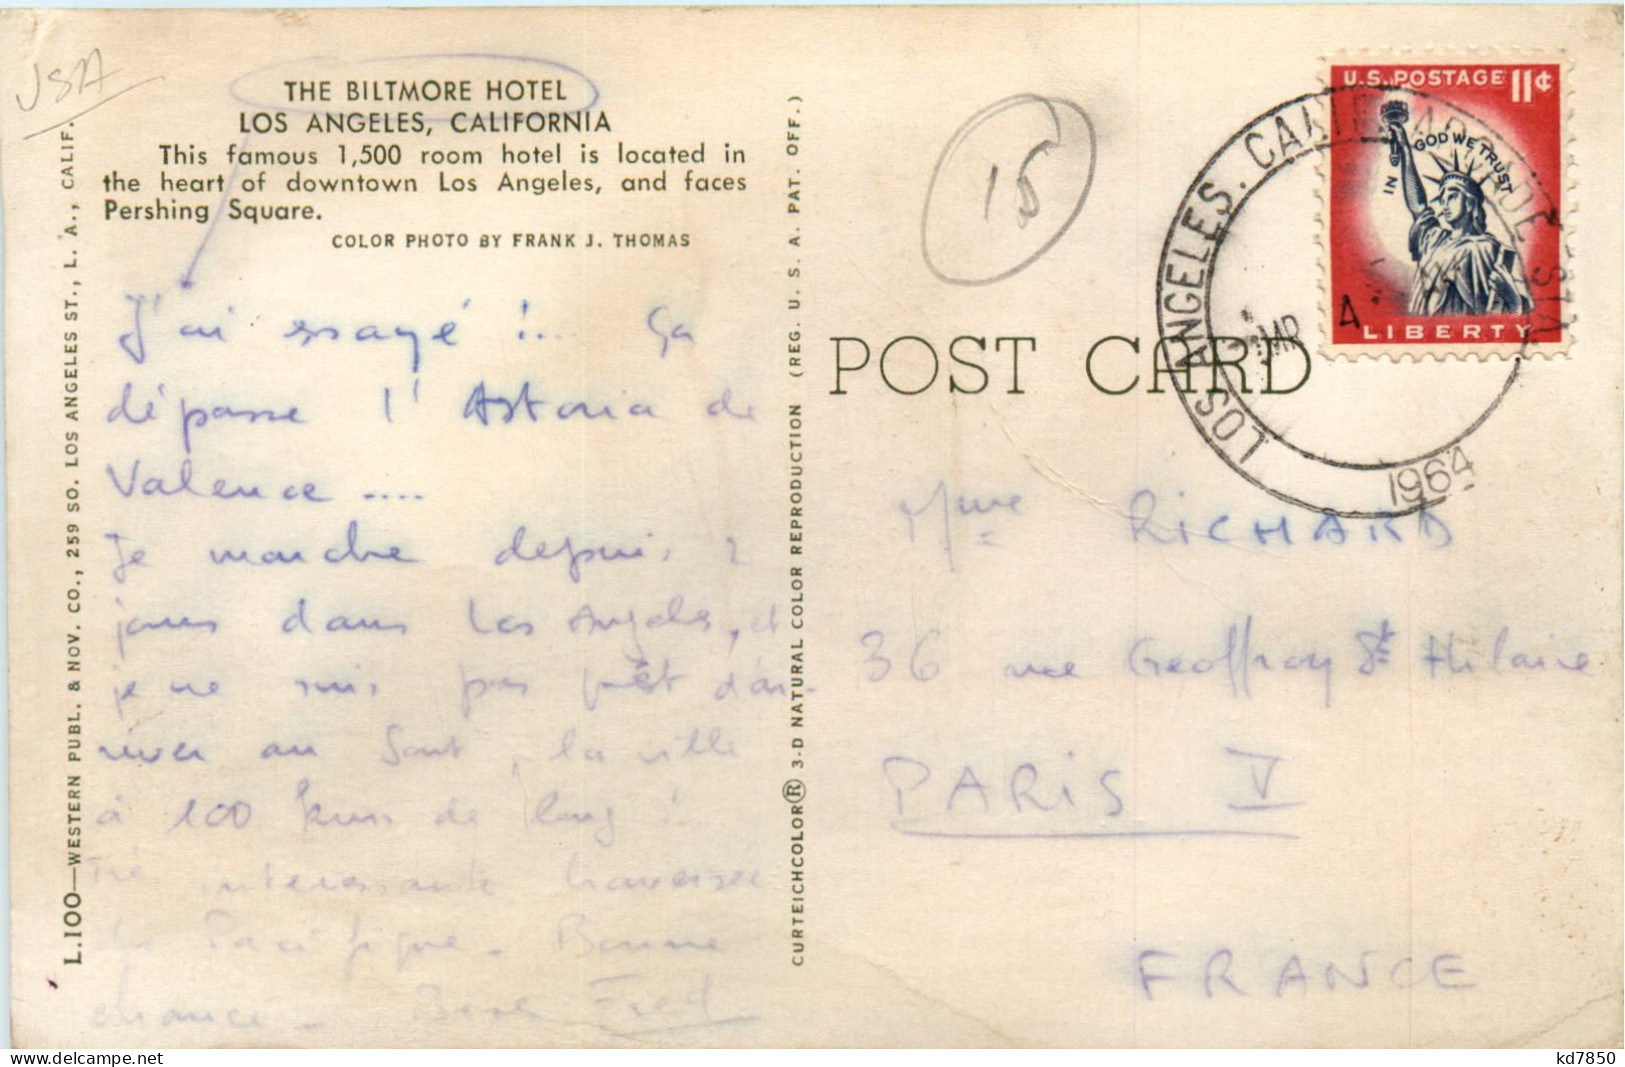 USA
THE BILTMORE HOTEL
LOS ANGELES, CALIFORNIA
This famous 1,500 room hotel is located in
the heart of downtown Los Angeles, and faces
Pershing Square.
COLOR PHOTO BY FRANK J. THOMAS
J'ai essayé !... ça
dépasse l'Astoria de
Valence ....
Je marche depuis 2
jours dans Los Angeles, et
je ne suis pas prêt d'ar-
river au bout, la ville
a 100 kms de long !..
Très intéressante traversée
du Pacifique - Bonne
chance - Fred
L.100—WESTERN PUBL. & NOV. CO., 259 SO. LOS ANGELES ST., L. A., CALIF.
CURTEICHCOLOR® 3-D NATURAL COLOR REPRODUCTION (REG. U. S. A. PAT. OFF.)
15
POST CARD
U.S. POSTAGE 11¢
IN GOD WE TRUST
LIBERTY
LOS ANGELES. CALIF.
MAR 4
1964
Mme RICHARD
36 rue Geoffroy St Hilaire
PARIS V
FRANCE
kd7850